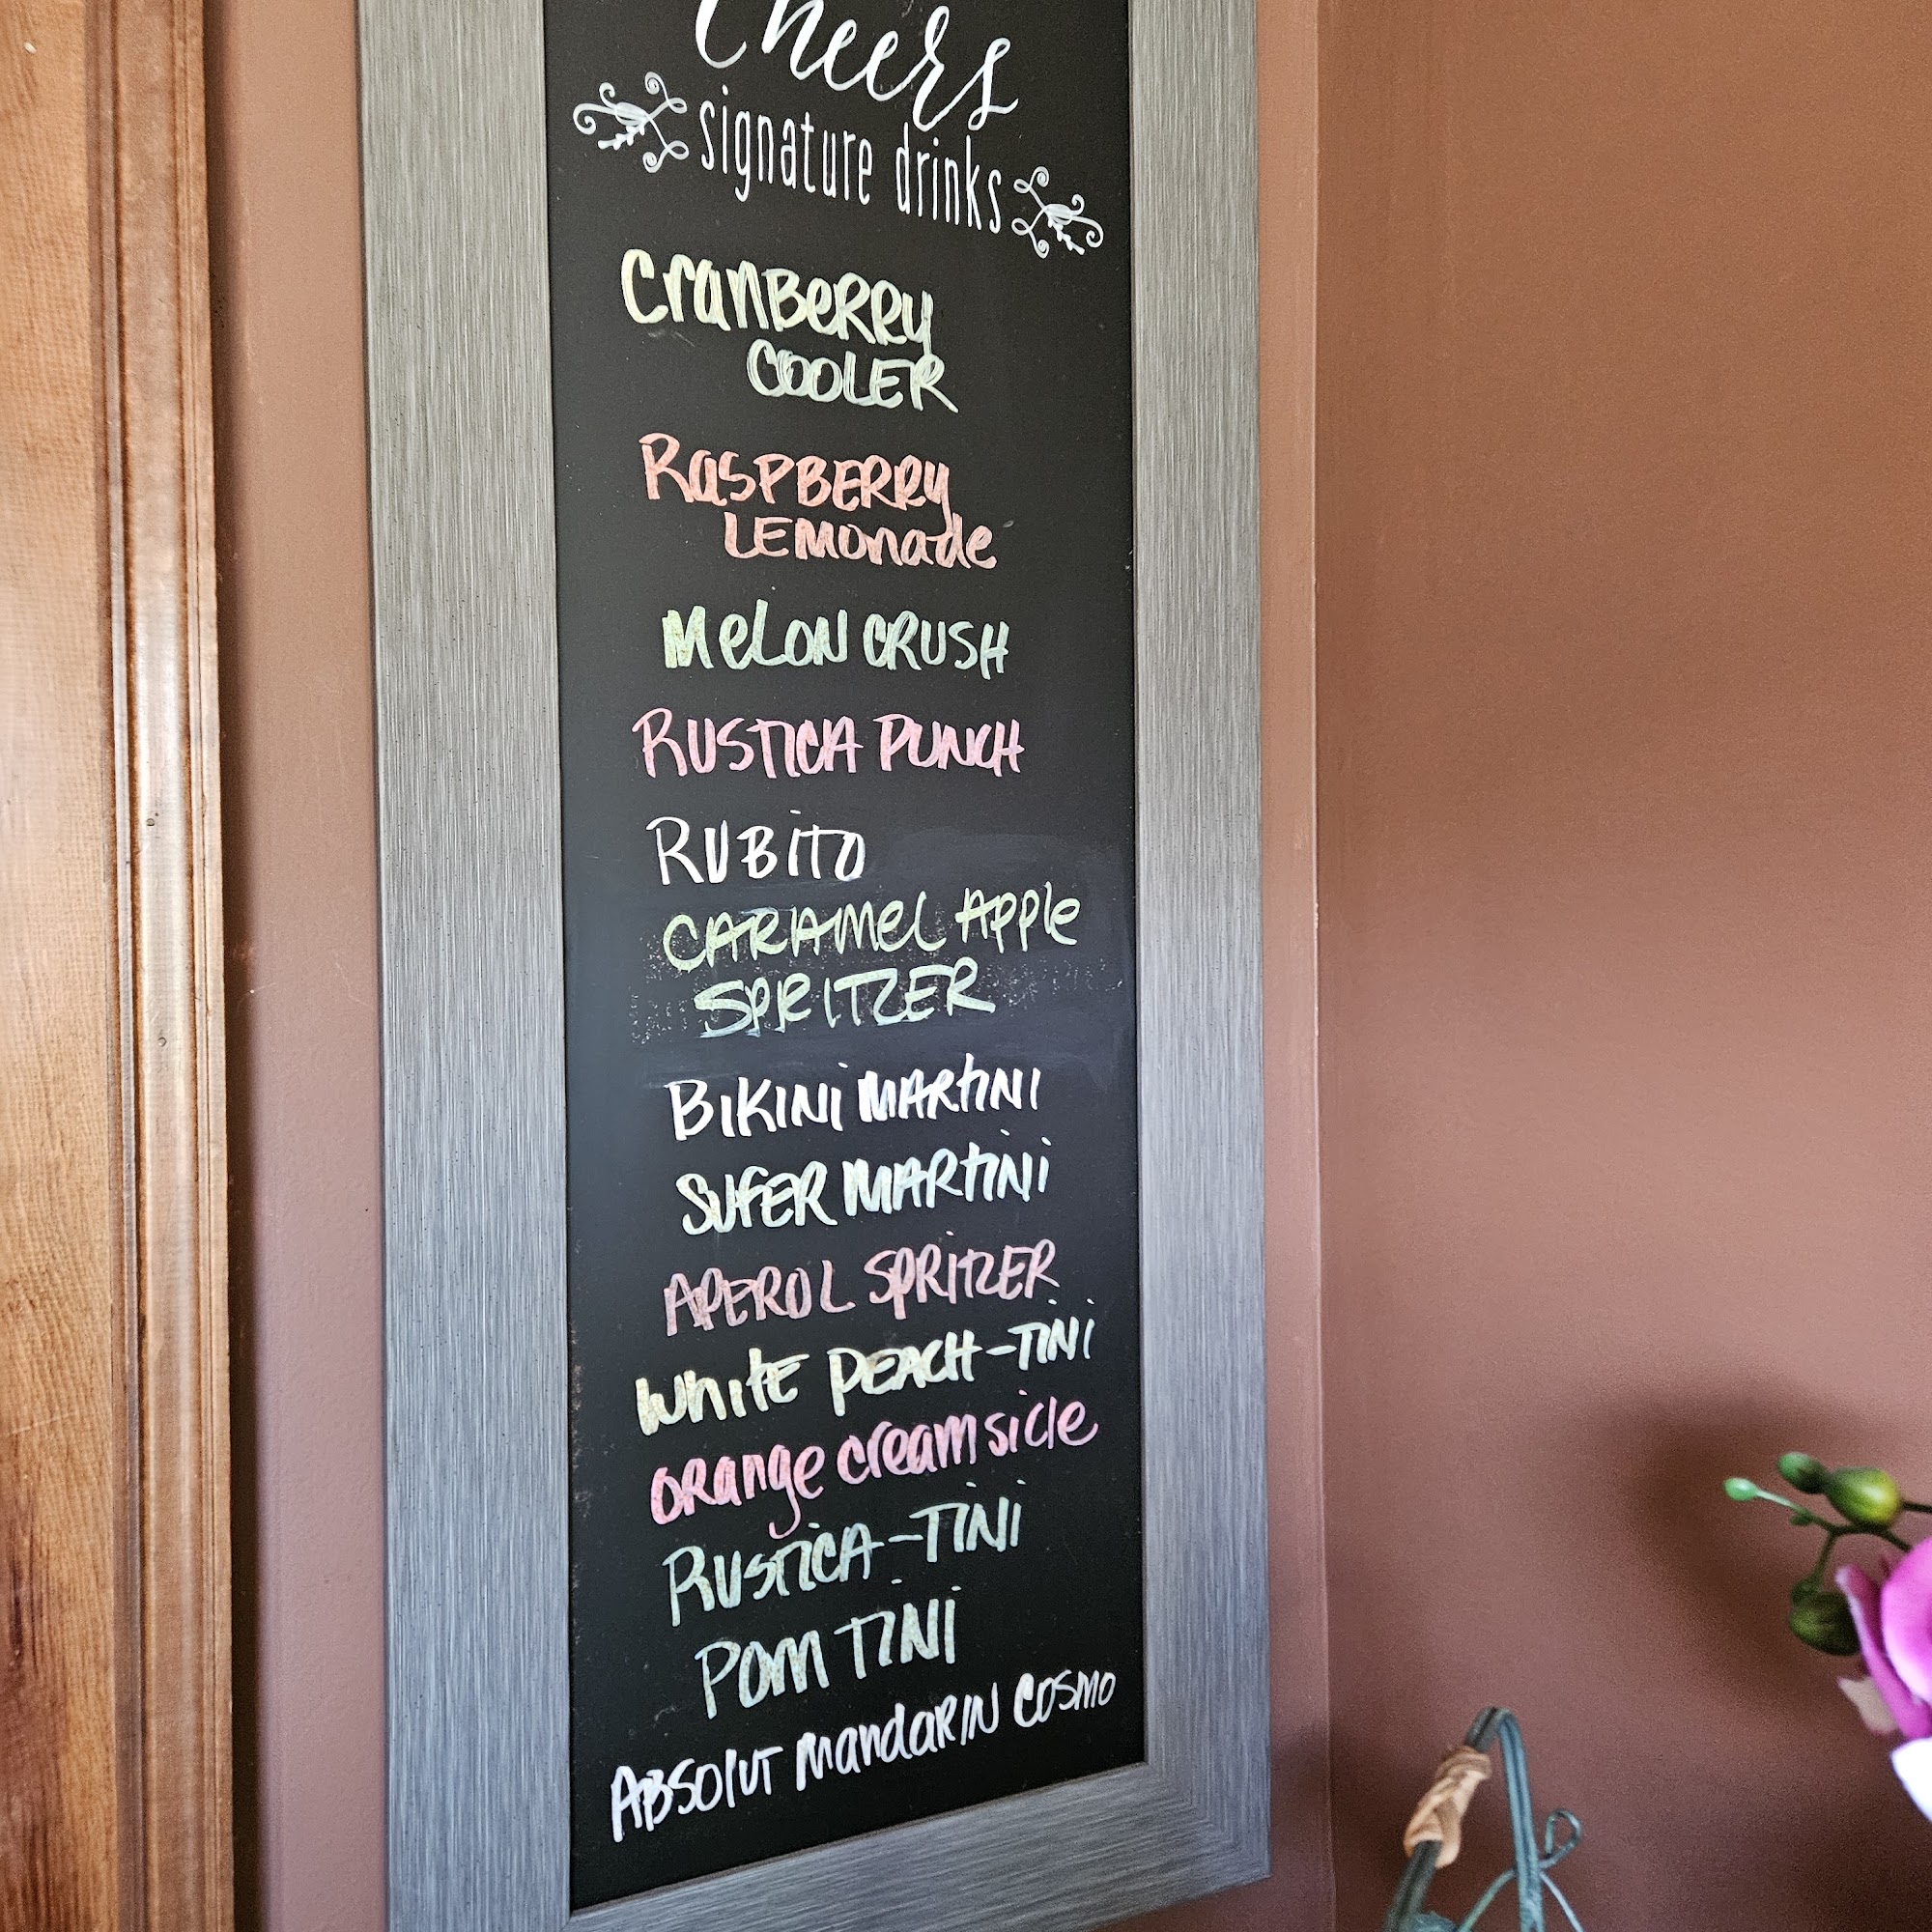 Cheers
signature drinks
CranBeRRy
COOLER
RaSPBERRy
LEMonade
MeLON CRUSH
RUSTICA PUNCH
RUBiTO
CARAMeL Apple
SPRITZER
BiKiNi MARtiNI
SUFER MARTiNi
APEROL SPRITZER
White PEACH-TiNi
ORange creamsicle
RUSTiCA-TiNi
POM TiNi
ABSOlUT MandaRIN COSMO